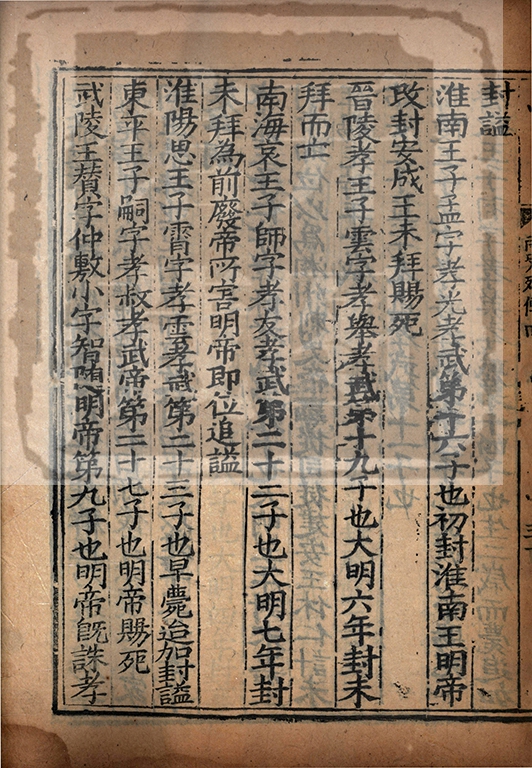 封謚
淮南王子孟字孝光孝武第十六子也初封淮南王明帝
改封安成王未拜賜死
晉陵孝王子雲字孝舉孝武第十九子也大明六年封未
拜而亡
南海哀王子師字孝友孝武第二十二子也大明七年封
未拜為前廢帝所害明帝即位追謚
淮陽思王子霄字孝雲孝武第二十三子也早薨追加封謚
東平王子嗣字孝叔孝武帝第二十七子也明帝賜死
武陵王贊字仲敷小字智隨明帝第九子也明帝既誅孝